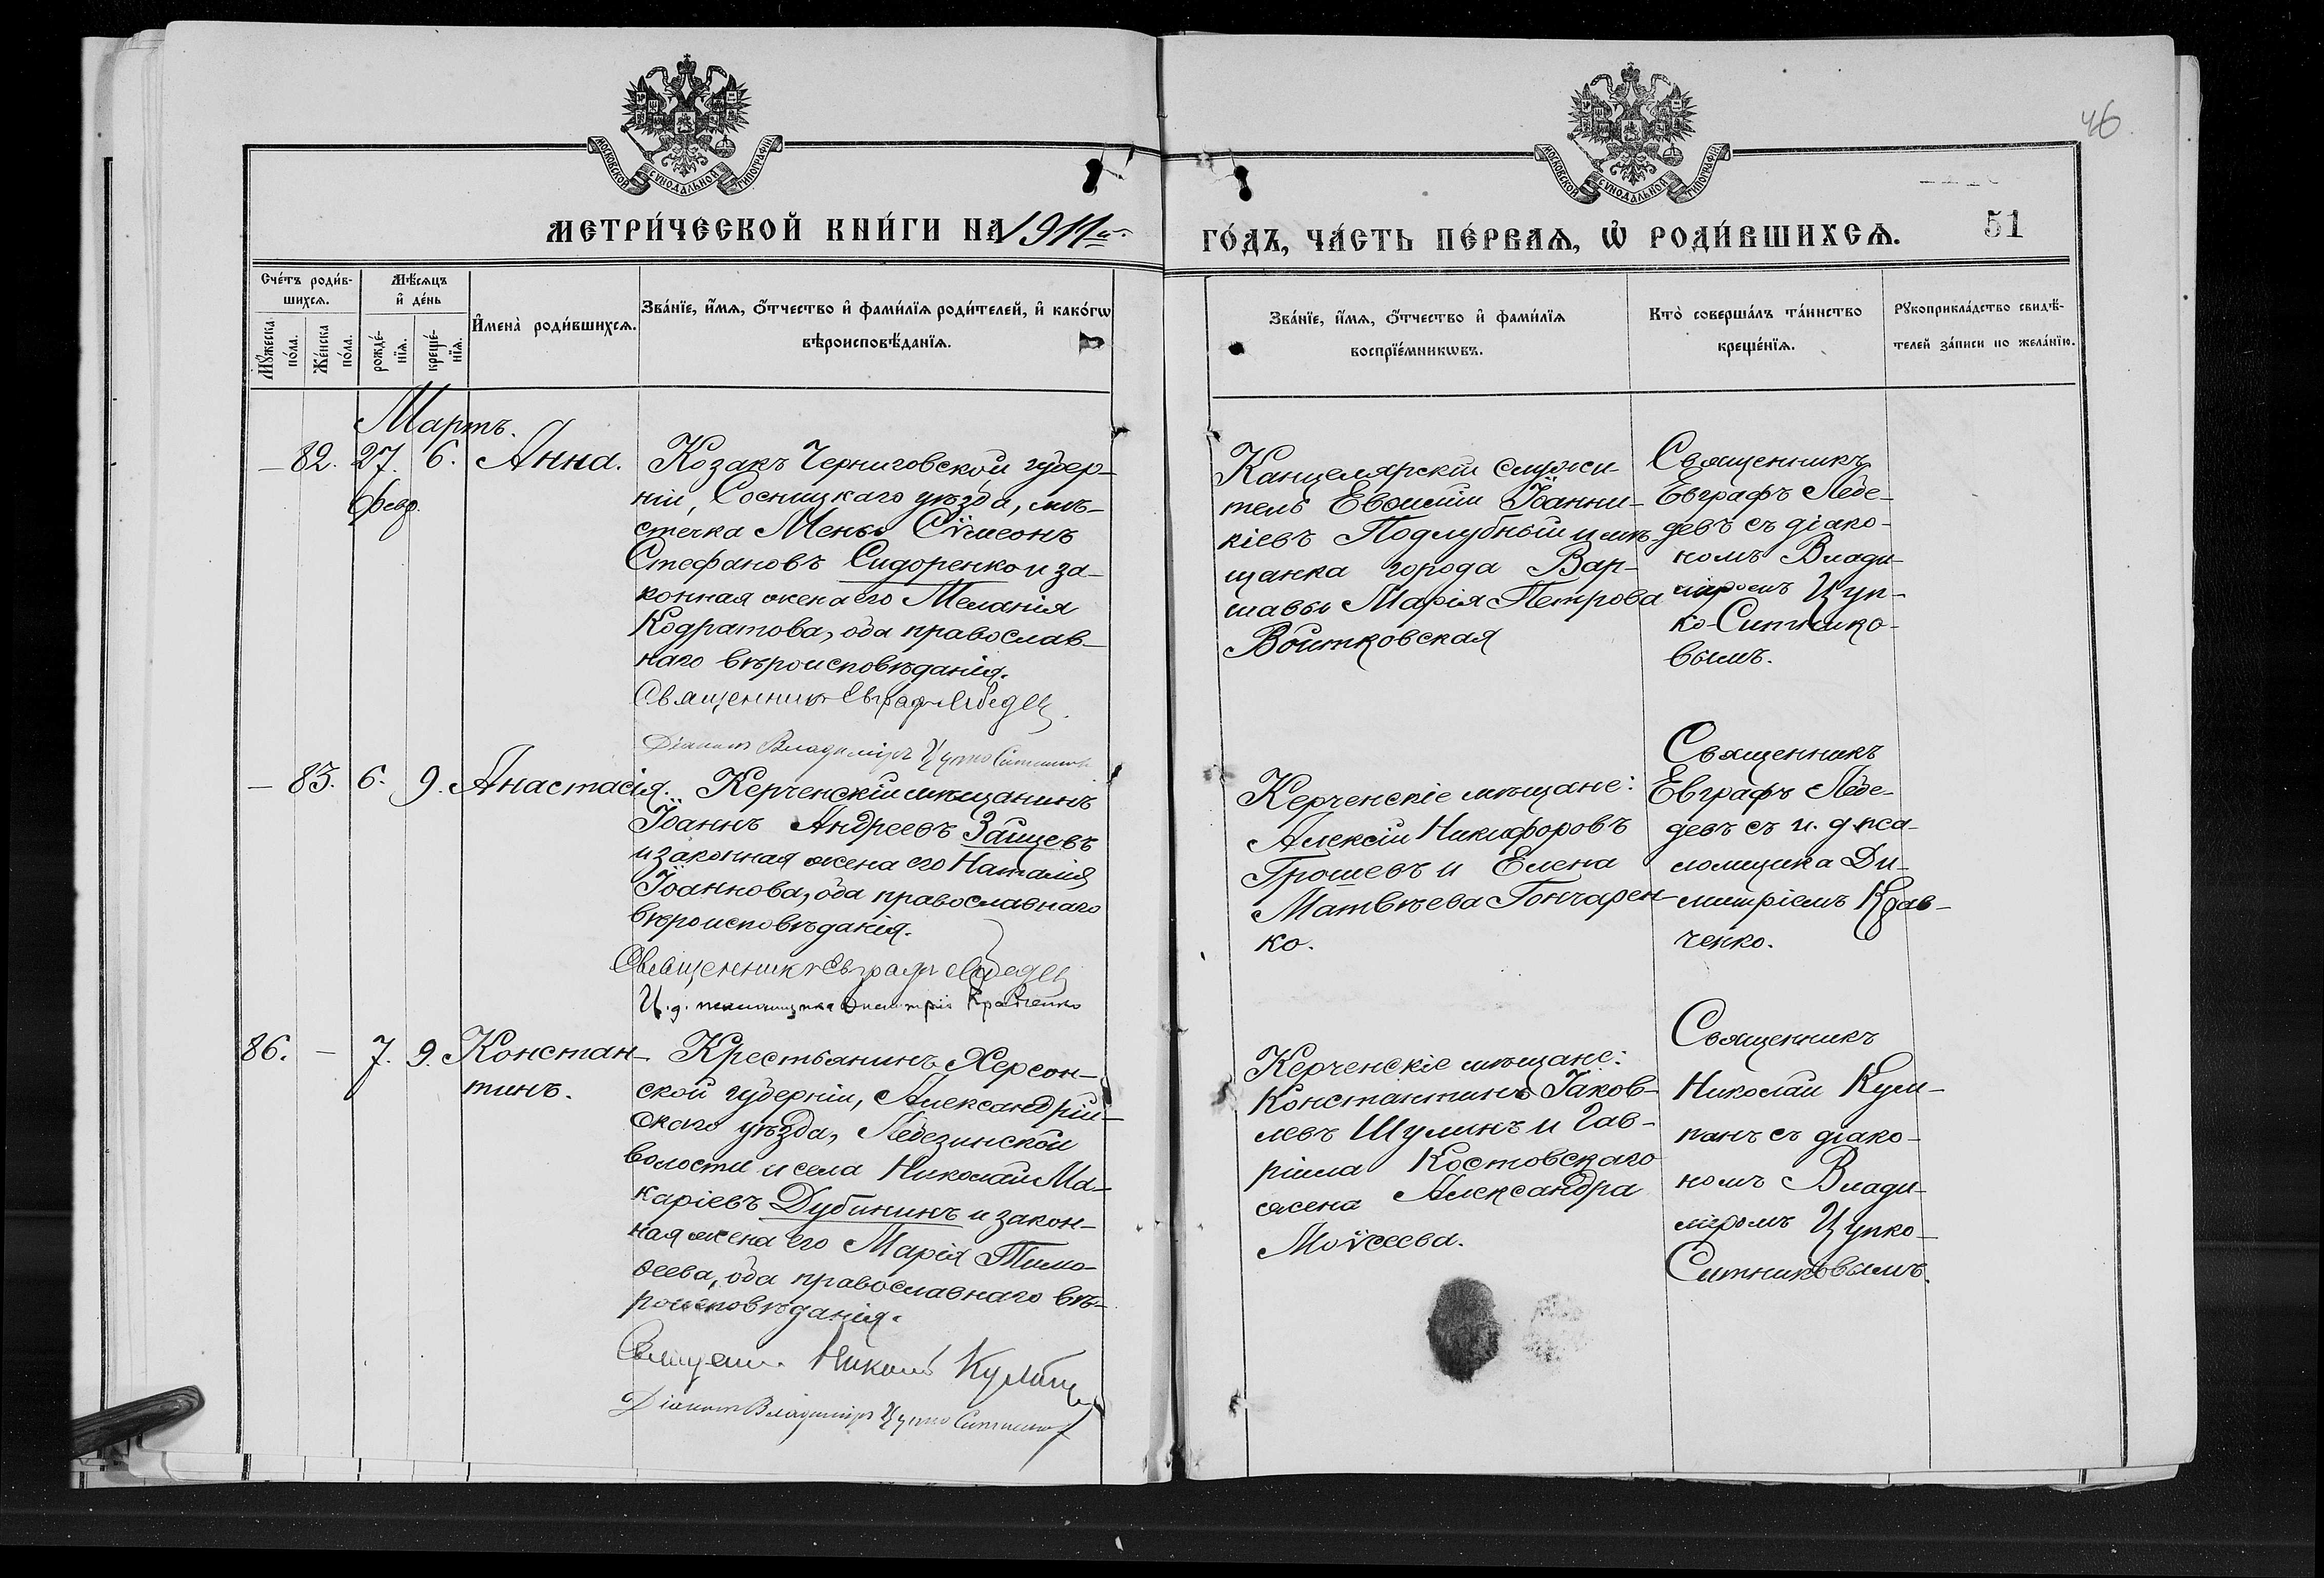 46
МОСКОВСКОЙ СУНОДАЛЬНОЙ ТИПОГРАФІИ
МОСКОВСКОЙ СУНОДАЛЬНОЙ ТИПОГРАФІИ
МЕТРИ́ЧЕСКОЙ КНИ́ГИ НА 1911й
ГО́ДЪ, ЧА́СТЬ ПЕ́РВАѦ, Ѡ҆ РОДИ́ВШИХСѦ.
51
Сче́тъ роди́в-
шихсѧ.
Мꙋ́жеска
по́ла.
Же́нска
по́ла.
Мѣ́сѧцъ
и҆ де́нь
рожде́-
нїѧ.
креще́-
нїѧ.
И҆мена̀ роди́вшихсѧ.
Зва́нїе, и҆́мѧ, ѻ҆́тчество и҆ фами́лїѧ роди́телей, и҆ како́гѡ
вѣроисповѣ́данїѧ.
Зва́нїе, и҆́мѧ, ѻ҆́тчество и҆ фами́лїѧ
воспрїе́мникѡвъ.
Кто̀ соверша́лъ та́инство
креще́нїѧ.
Рꙋкоприкла́дство свидѣ́-
телей за́писи по жела́нїю.
Мартъ.
— 82. 27. 6. Анна.
Февр.
Козакъ Черниговской губер-
ніи, Сосницкаго уѣзда, мѣ-
стечка Мены Сѵмеонъ
Стефановъ Сидоренко и за-
конная жена его Меланія
Кодратова, оба православ-
наго вѣроисповѣданія.
Священникъ Евграфъ Лебедев
Діаконъ Владиміръ Цупко Ситников
Канцелярскій служи-
тель Евѳимій Іоанни-
кіевъ Подлубный и мѣ-
щанка города Вар-
шавы Марія Петрова
Войтковская
Священникъ
Евграфъ Лебе-
девъ съ діако-
номъ Влади-
міромъ Цуп-
ко-Ситнико-
вымъ.
— 83. 6. 9. Анастасія.
Керченскій мѣщанинъ
Іоаннъ Андреевъ Зайцевъ
и законная жена его Наталія
Іоаннова, оба православнаго
вѣроисповѣданія.
Священникъ Евграфъ Лебедев
И. д. псаломщика Димитрій Кравченко
Керченскіе мѣщане:
Алексій Никифоровъ
Грошевъ и Елена
Матвѣева Гончарен-
ко.
Священникъ
Евграфъ Лебе-
девъ съ и. д. пса-
ломщика Ди-
митріемъ Крав-
ченко.
86. — 7. 9. Констан-
тинъ.
Крестьянинъ Херсон-
ской губерніи, Александрій-
скаго уѣзда,
волости и села Николай Ма-
каріевъ Дубининъ и закон-
ная жена его Марія Тимо-
ѳеева, оба православнаго вѣ-
роисповѣданія.
Священ. Николай
Діаконъ Владиміръ Цупко Ситников
Керченскіе мѣщане:
Константинъ Іаков-
левъ Шулинъ и Гав-
ріила Костовскаго
жена Александра
Моѵсеева.
Священникъ
Николай Кул-
панъ съ діако-
номъ Влади-
міромъ Цупко-
Ситниковымъ.